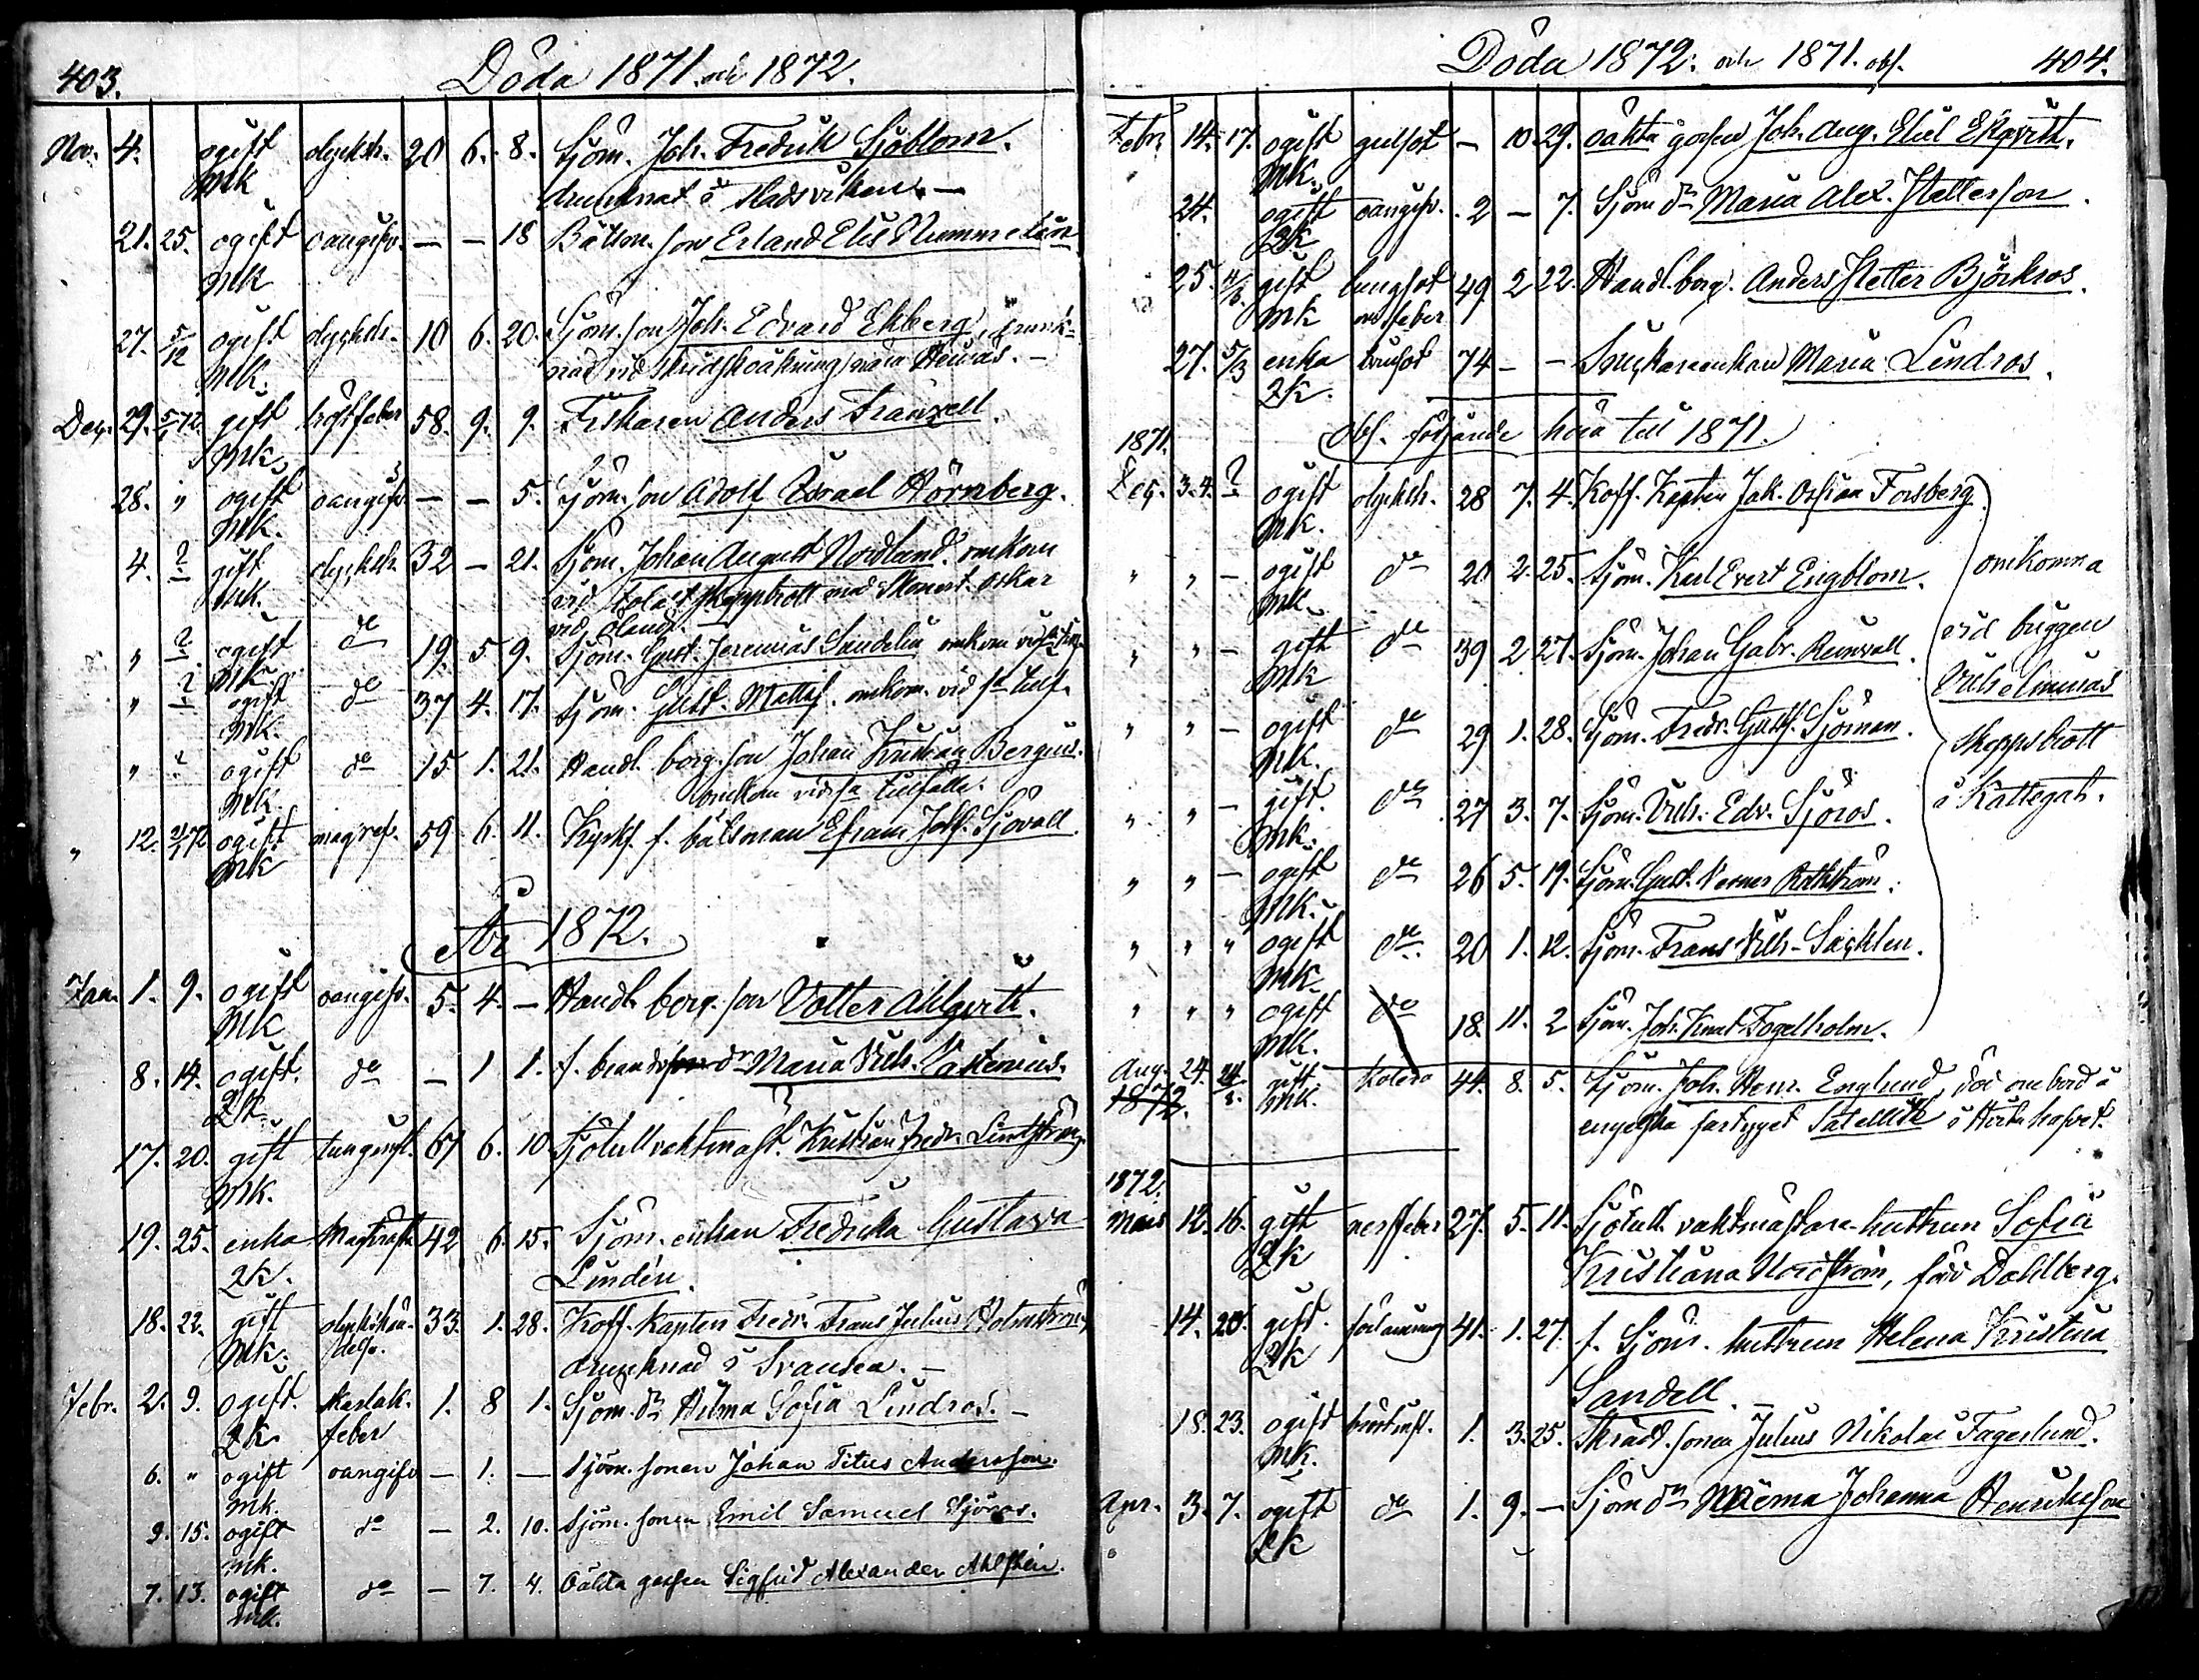 403. Döda 1871. och 1872.
Nov. 4. ogift olycksh. 20 6. 8. Sjöm. Joh. Fredrik Sjöblom.
mk drunknat å
21. 25. ogift oangifv. — — 18 Båtsm. son Erland Elis Nummelin
mk
27. 5/12 ogift olycksh. 10 6. 20. Sjöm. son Joh. Edvard Ekberg, drunk-
mk. nad vid skridskoåkning nära
Dec. 29. gift feber 58. 9. 9. Fiskaren Anders Franzell.
mk.
28. " ogift oangifv — — 5. Sjöm. son Adolf Israel Hörnberg.
mk.
4. ? gift olycksh. 32 — 21. Sjöm. Johan August Nordlund. omkom
mk. vid skeppsbrott med Skonert. Oskar
vid Öland. —
" ? ogift do 19. 5 9. Sjöm. Gust. Jeremias Sandelin omkom vid
mk.
" ? ogift do 37 4. 17. Sjöm. Gust. Matts. omkom. vid sa tillf.
mk.
" ? ogift do 15 1. 21. Handl. borg. son Johan Kristian Bergius.
mk. omkom vid sa tillfälle.
" 12. ogift magref. 59 6. 11. Kyrks. f. båtsman Efraim Joh. Sjövall
mk
År 1872.
Jan. 1. 9. ogift oangifv. 5. 4. — Handl. borg. son Volter Ahlqvist.
mk
8. 14. ogift. do — 1 1. f. dr Maria Vilh.
2k.
17. 20. gift lunginfl. 67 6. 10. Sjötullvaktmäst. Kristian Fredr. Lindström.
mk.
19. 25. enka 42 6. 15. Sjöm. enkan Fredrika Gustava
2k. Lindén.
18. 22. gift olyckshän- 33. 1. 28. Koff. Kapten Fredr. Frans Julius Holmström
mk. delse. drunknad i Svansea. —
Febr. 2. 9. ogift. skarlak. 1. 8 1. Sjöm. dr Hilma Sofia Lindros. —
2k feber
6. " ogift oangifv — 1. — Sjöm. sonen Johan Titus Andersson.
mk.
9. 15. ogift do — 2. 10. Sjöm. sonen Emil Samuel Sjöros.
mk.
7. 13. ogift do — 7. 4. Oäkta gossen Sigfrid Alexander Ahlsten.
mk.
Döda 1872. och 1871. obs. 404.
Febr. 14. 17. ogift gulsot — 10. 29. oäkta gossen Joh. Aug. Eliel Ekqvist.
mk.
24. ogift oangifv. 2 — 7. Sjöm dr Maria Alex.
2k
25. 4/3. gift lungsot 49 2 22. Handl. borg. Anders Petter Björkros.
mk feber
27. 5/3 enka 74 — — Maria Lindros.
2k.
1871. Obs. följande höra till 1871.
Dec. 3.4. ? ogift olycksh. 28 7. 4. Koff. Kapten Jak. Ossian Forsberg
mk.
" " — ogift do 20 2. 25. Sjöm. Karl Evert Engblom. omkomna
mk.
" " — gift do 39 2 27. Sjöm. Johan Gabr. vid briggen
mk Vilhelminas
" " — ogift do 29 1. 28. Sjöm. Fredr. Gust. Sjöman. skeppsbrott
mk.
" " — gift. do 27 3. 7. Sjöm. Vilh. Edv. Sjöros. i Kattegat.
mk.
" " — ogift do 26 5. 19. Sjöm. Gust. Verner
mk.
" " " ogift do 20 1. 12. Sjöm. Frans Vilh. Sacklen.
mk.
" " " ogift do 18. 11. 2 Sjöm. Joh. Knut Fogelholm.
mk.
Aug. 24. gift Kolera 44. 8. 5. Sjöm. Joh. Henr. Englund, död om bord å
1872. mk. engelska fartyget Satellite å
1872.
Mars 12. 16. gift nerffeber 27. 5. 11. Sjötull. vaktmästare hustrun Sofia
2k Kristiana Nordström, född Dahlberg.
14. 20. gift. förlamning 41. 1. 27. f. Sjöm. hustrun Helena Kristina
2k Sandell. —
18. 23. ogift 1. 3. 25. Skrädd. sonen Julius Nikolai Fagerlund.
mk.
Apr. 3. 7. ogift do 1. 9. — Sjöm dr Johanna Henriksson
2k